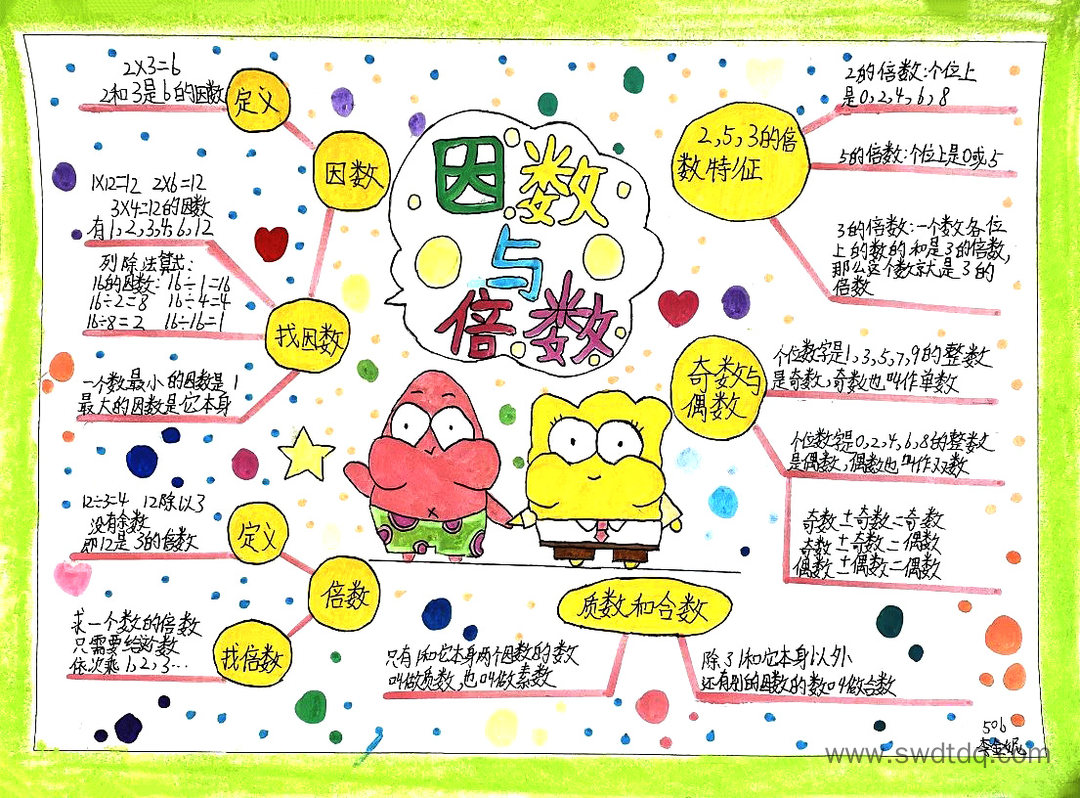 因数
与
倍数
定义
2×3=6
2和3是6的因数
因数
1×12=12 2×6=12
3×4=12的因数
有1,2,3,4,6,12
找因数
列除法算式:
16的因数:16÷1=16
16÷2=8 16÷4=4
16÷8=2 16÷16=1
一个数最小的因数是1
最大的因数是它本身
定义
12÷3=4 12除以3
没有余数
即12是3的倍数
倍数
找倍数
求一个数的倍数
只需要给该数
依次乘1,2,3…
2,5,3的倍
数特征
2的倍数:个位上
是0,2,4,6,8
5的倍数:个位上是0或5
3的倍数:一个数各位
上的数的和是3的倍数,
那么这个数就是3的
倍数
奇数与
偶数
个位数字是1,3,5,7,9的整数
是奇数,奇数也叫作单数
个位数字是0,2,4,6,8的整数
是偶数,偶数也叫作双数
奇数±奇数=奇数
奇数±奇数=偶数
偶数±偶数=偶数
质数和合数
只有1和它本身两个因数的数
叫做质数,也叫做素数
除了1和它本身以外
还有别的因数的数叫做合数
506
www.swdtdq.com